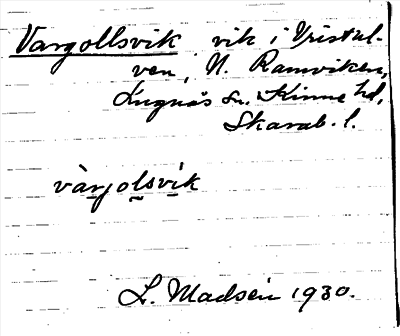 Vargollsvik vik i Yristal-
ven, N. Ramviken,
Lugnås sn. Kinne hd,
Skarab. l.
vàrjolsvik
L. Madsén 1930.